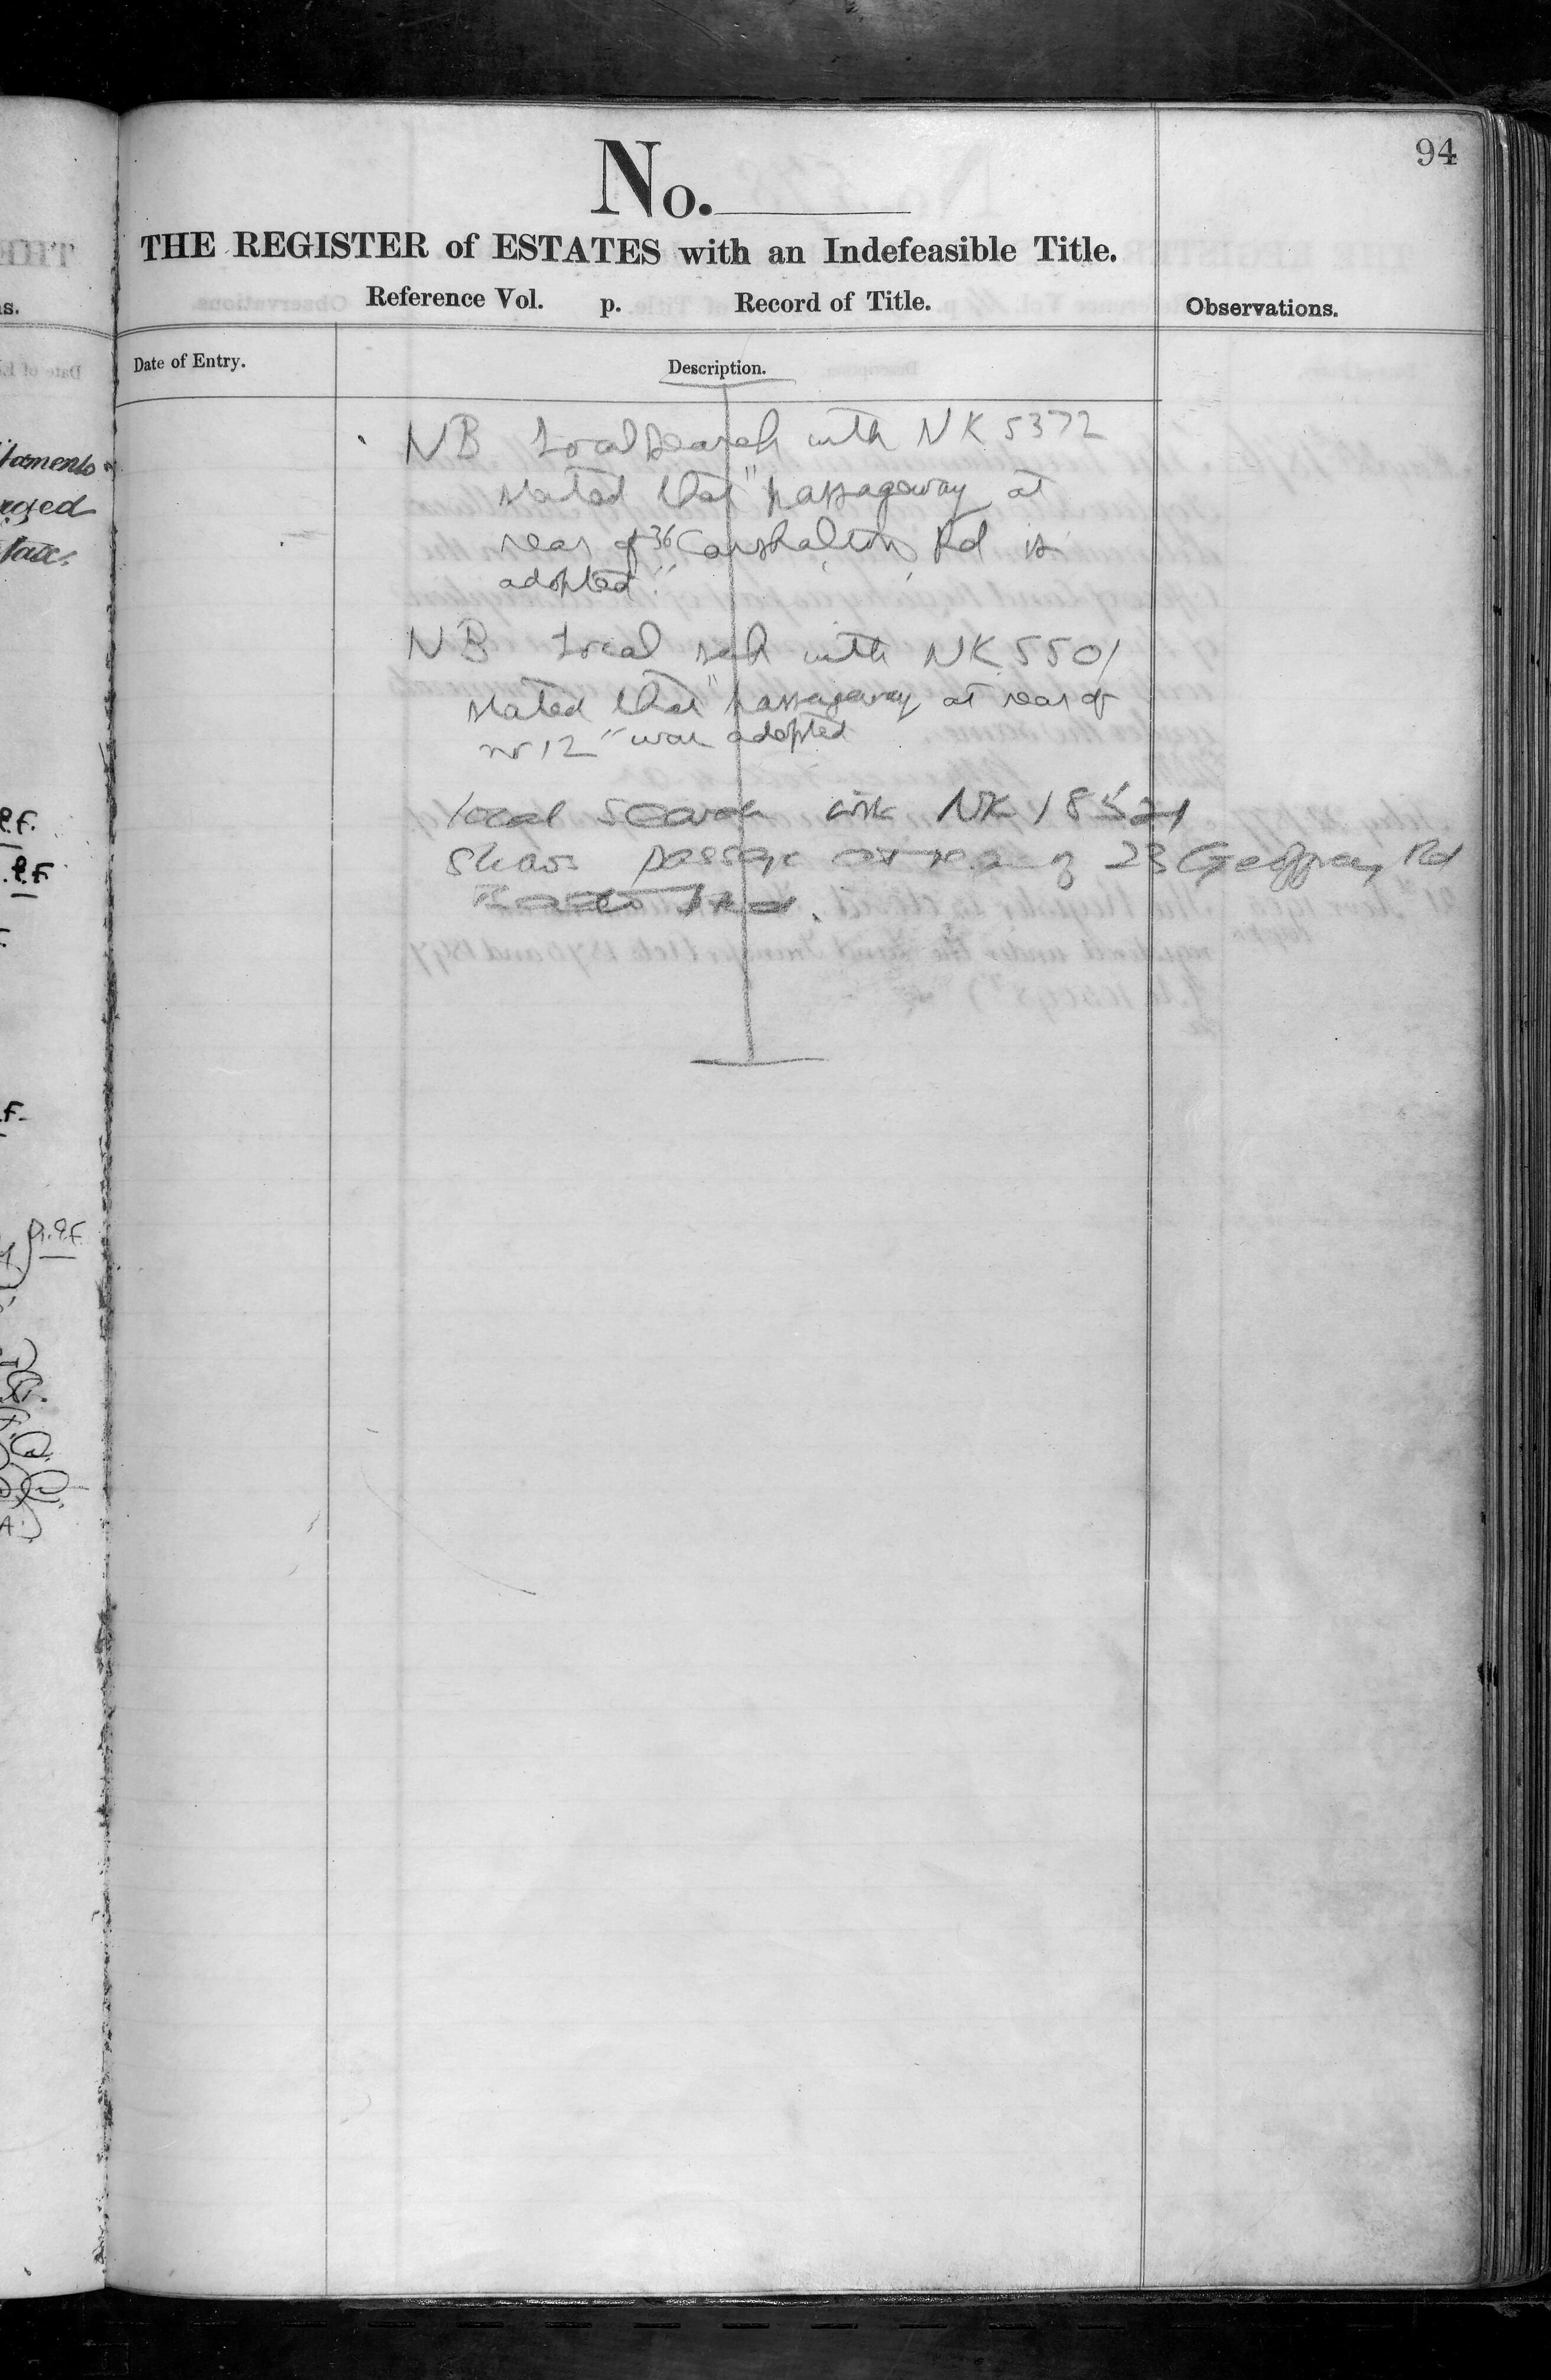 94
No.
THE REGISTER of ESTATES with an Indefeasible Title.
Reference Vol. p. Record of Title.
Observations.
Date of Entry.
Description.
NB Local search with NK 5372
stated that "passageway at
rear of 36 Carshalton Rd is
adopted".
NB Local sch with NK 5501
stated that "passageway at rear of
no 12" was adopted
local search with NK 18521
shows passage at rear of 23 Geoffrey Rd
itamento
rged
s.
P.F.
.P.F
F.